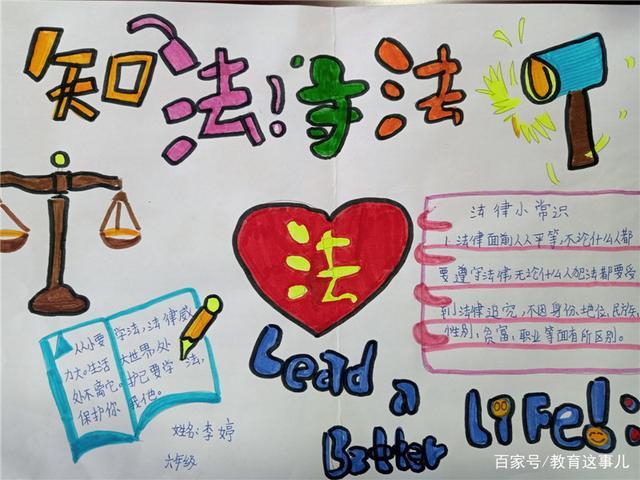 知法!守法
法
法律小常识
1.法律面前人人平等,不论什么人都
要遵守法律,无论什么人犯法都要受
到法律追究,不因身份、地位、民族,
性别,贫富、职业等面有所区别。
从小要学法,法律威
力大。生活大世界,处
处不离它。护己要学法,
保护你我他。
姓名:李婷
六年级
Lead a
Better
LiFe!
百家号/教育这事儿